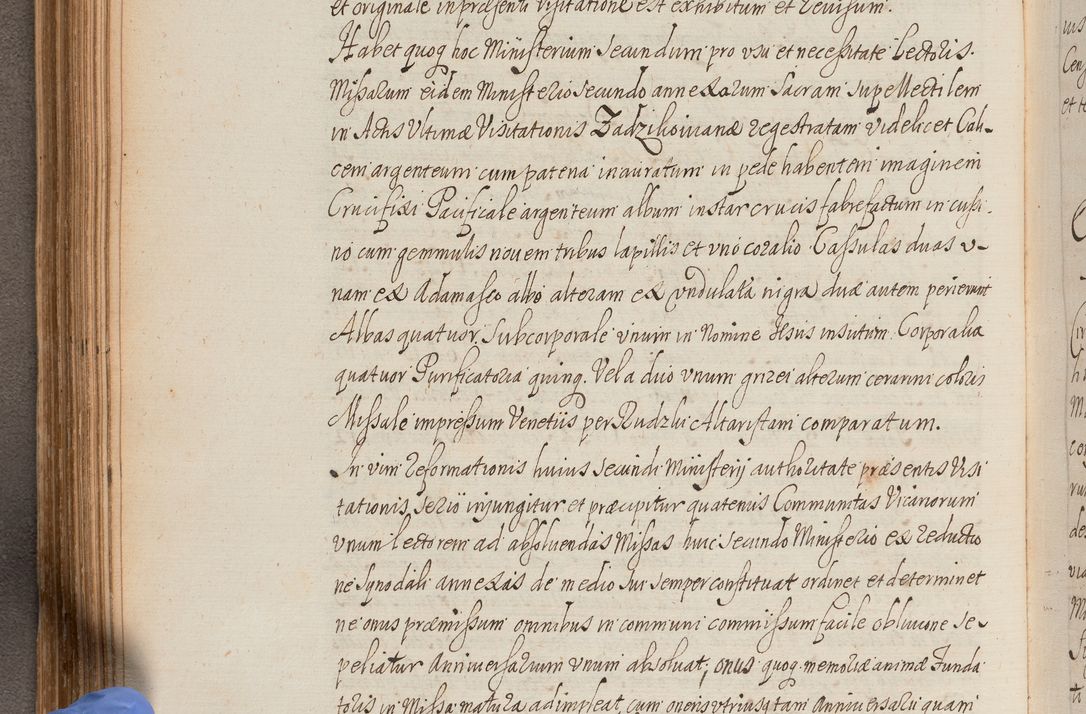 et originale in præsenti Visitatione est exhibitum et revisum.
Habet quoq hoc Ministerium Secundum pro usu et necessitate Lectoris
Missarum eidem Ministerio Secundo annexarum Sacram Supellectilem
in Actis Ultimæ Visitationis Zadzikovianæ regestratam videlicet Cali-
cem argenteum cum patena inauratum in pede habentem imaginem
Crucifixi Pacificale argenteum album instar crucis fabrefactum in cussi-
no cum gemmulis novem tribus lapillis et uno coralio. Cassulas duas u-
nam ex Adamasco albo alteram ex undulata nigra duæ autem perierunt
Albas quatuor. Subcorporale unum in Nomine Jesus insutum. Corporalia
quatuor Purificatoria quinq. Vela duo unum grizei alterum cerarini coloris
Missale impressum Venetiis per Rudzki Altaristam comparatum.
In vim Reformationis huius Secundi Ministerij authoritate præsentis Visi
tationis serio injungitur et præcipitur quatenus Communitas Vicariorum
unum lectorem ad absolvendas Missas huic Secundo Ministerio ex reductio
ne Synodali annexas de medio sui semper constituat ordinet et determinet
ne onus præmissum omnibus in communi commissum facile oblivione se-
peliatur Anniversarium unum absolvat, onus quoq memoriæ animæ Funda
toris in Missa matura adimpleat, cum oneris utriusq tam Anniversarii quam